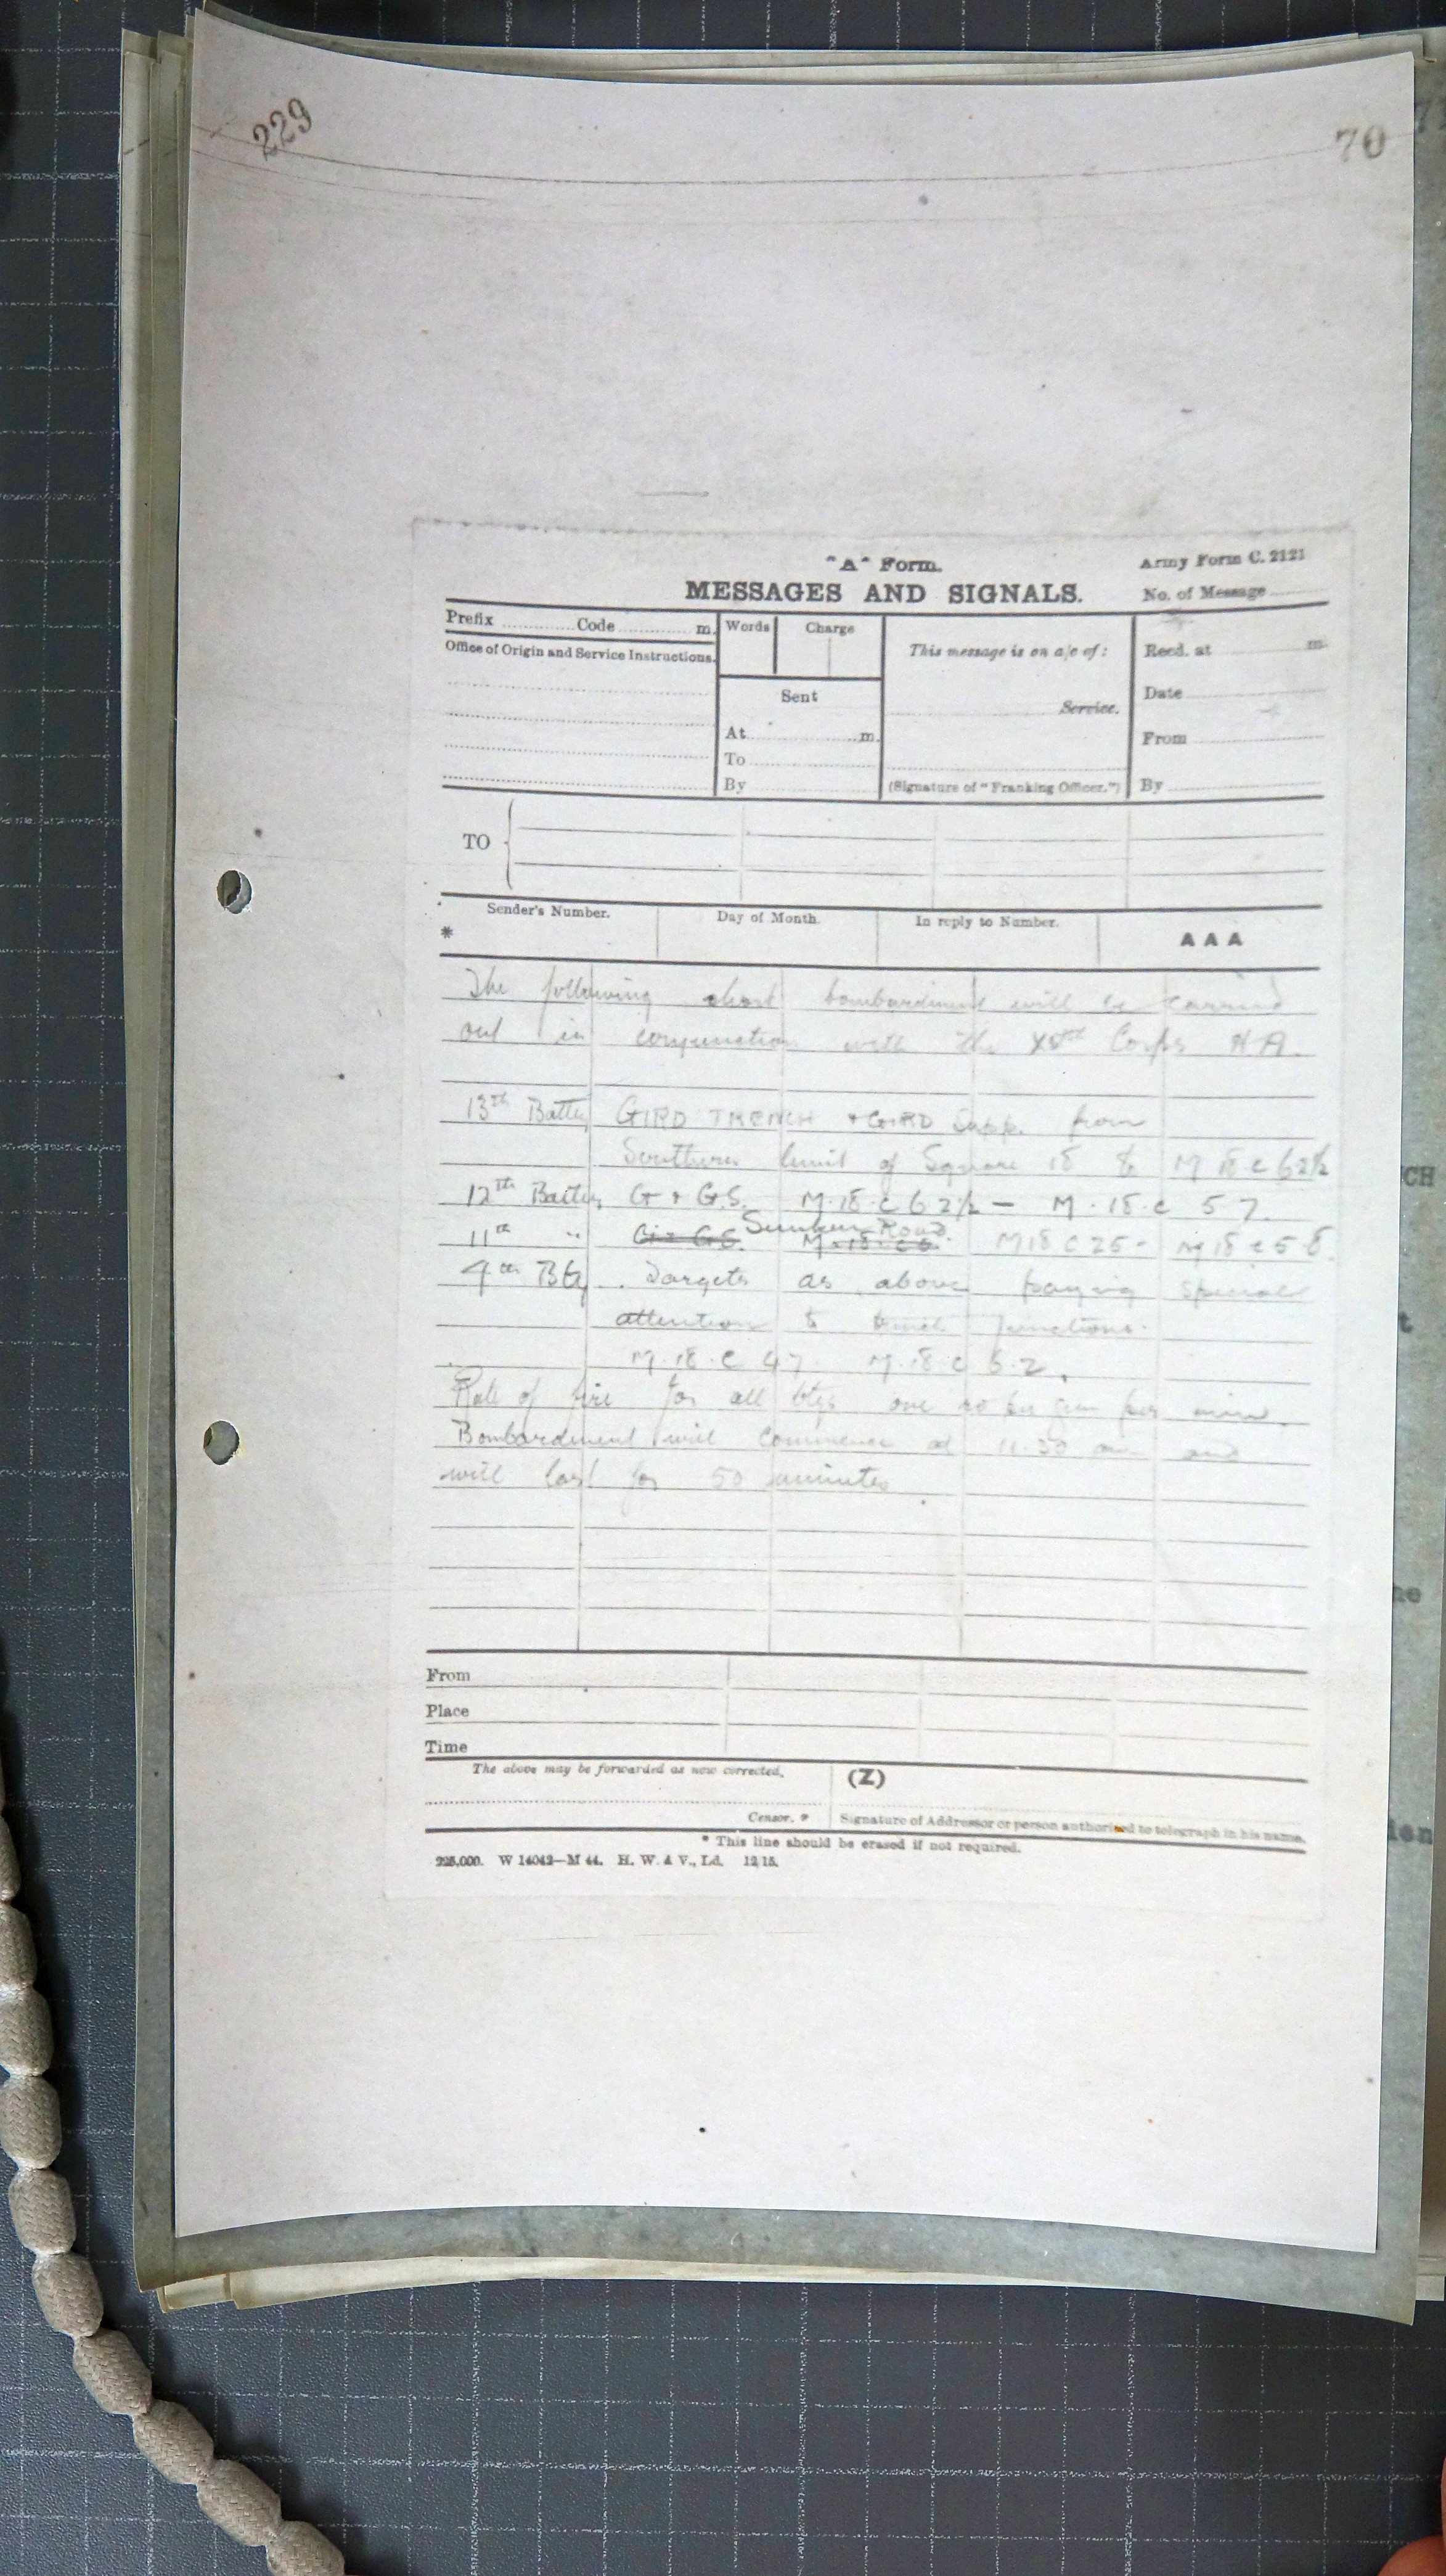 229
70
"A" Form.
Army Form C. 2121
MESSAGES AND SIGNALS.
No. of Message
Prefix Code m.
Words Charge
This message is on a/c of:
Recd. at m.
Office of Origin and Service Instructions.
Sent
Service.
Date
At m.
From
To
By
(Signature of "Franking Officer.")
By
TO
Sender's Number.
Day of Month.
In reply to Number.
AAA
*
The following short bombardment will be carried
out in conjunction with the Corps H A.
13th GIRD TRENCH + GIRD Supp. from
Southern limit of Square 18 to M 18 c 6 2½
12th G + G.S. M.18.c 6 2½ – M.18.c 5 7.
Sunken Road
11th " G + G.S. M.18.c 6 M18 C 25 - M 18 c 5 8.
4th Bty. Targets as above paying special
attention to trench junctions.
M.18.c 4 7. M.18 c 6.2.
Rate of fire for all btys one rd per gun per min.
Bombardment will commence at 11.30 am and
will last for 50 minutes
From
Place
Time
The above may be forwarded as now corrected.
(Z)
Censor.
Signature of Addressor or person authorised to telegraph in his name.
* This line should be erased if not required.
225,000. W 14042—M 44. H. W. & V., Ld. 12/15.